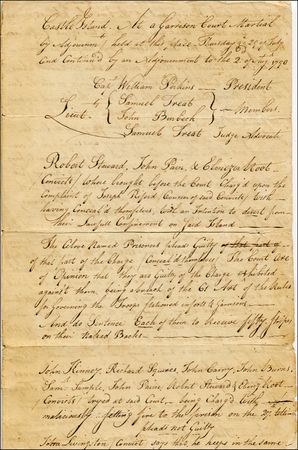 Castle Island. At a Garrison Court Martial
by Adjournmt. held at this place Thursday 29 of July
And Continued by an Adjournment to the 2 of Augt. 1790
Capt. William Perkins — President
Lieut. Samuel Treat
John Burbeck } Members.
Samuel Treat Judge Advocate
Robert Steward, John Paine, & Ebenezer Root
Convicts, Whome brought before the Court Charg'd upon the
Complaint of Joseph Overseer of said Convicts, With
having Conceal'd themselves, With an intention to desert from
their Lawfull Confinement on said Island.
The Above Named Prisoners pleads Guilty
of that part of the Charge Conceal'd themselves. The Court are
of Opinion that they are Guilty of the Charge Exhibited
against them, being a breach of the Art. of the Rules
for Governing the Troops stationed in forts & Garrisons
And do Sentence Each of them to Receive fifty stripes
on their Naked Backs
John Kinney, Richard Squires, John Carry, John Burns,
Saml. Temple, John Paine, Robert Steward & Ebenr. Root
Convicts, tryed at said Court, being Charg'd With
maliciously setting fire to the prison on the 27
pleads not Guilty
John Livingston, Convict says that he keeps in the same